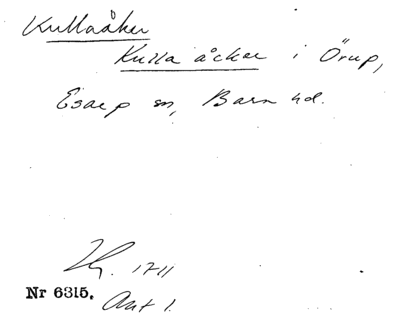 Kullaåker
Kulla åcker i Örup,
Esarp sn, Bara hd.
1711
Nr 6315.
Ant 1.